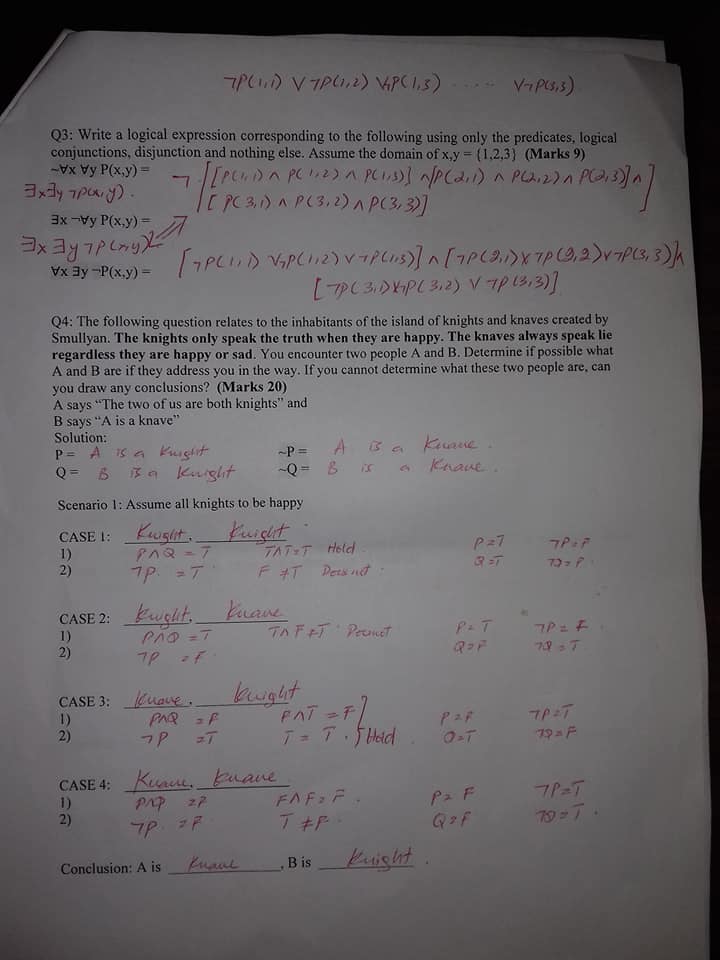 ¬P(1,1) ∨ ¬P(1,2) ∨ ¬P(1,3) ..... ∨ ¬P(3,3)
Q3: Write a logical expression corresponding to the following using only the predicates, logical
conjunctions, disjunction and nothing else. Assume the domain of x,y = {1,2,3} (Marks 9)
~∀x ∀y P(x,y) = ¬ [[P(1,1) ∧ P(1,2) ∧ P(1,3)] ∧ [P(2,1) ∧ P(2,2) ∧ P(2,3)] ∧
∃x∃y ¬P(x,y). [P(3,1) ∧ P(3,2) ∧ P(3,3)]]
∃x ¬∀y P(x,y) =
∃x ∃y ¬P(x,y)
∀x ∃y ¬P(x,y) = [¬P(1,1) ∨ ¬P(1,2) ∨ ¬P(1,3)] ∧ [¬P(2,1) ∨ ¬P(2,2) ∨ ¬P(3,3)] ∧
[¬P(3,1) ∨ ¬P(3,2) ∨ ¬P(3,3)]
Q4: The following question relates to the inhabitants of the island of knights and knaves created by
Smullyan. The knights only speak the truth when they are happy. The knaves always speak lie
regardless they are happy or sad. You encounter two people A and B. Determine if possible what
A and B are if they address you in the way. If you cannot determine what these two people are, can
you draw any conclusions? (Marks 20)
A says “The two of us are both knights” and
B says “A is a knave”
Solution:
P = A is a Knight ~P = A is a Knave.
Q = B is a Knight ~Q = B is a Knave.
Scenario 1: Assume all knights to be happy
CASE 1: Knight, Knight
1) P∧Q = T T∧T=T Hold P=T ¬P=F
2) ¬P = T F ≠T Does not Q=T ¬Q=F
CASE 2: Knight, Knave
1) P∧Q = T T∧F≠T Does not P=T ¬P=F
2) ¬P = F Q=F ¬Q=T
CASE 3: Knave, Knight
1) P∧Q = F F∧T = F P=F ¬P=T
2) ¬P = T T = T. Hold Q=T ¬Q=F
CASE 4: Knave, Knave
1) P∧Q = F F∧F=F. P=F ¬P=T
2) ¬P = F T ≠F. Q=F ¬Q=T.
Conclusion: A is Knave , B is Knight.